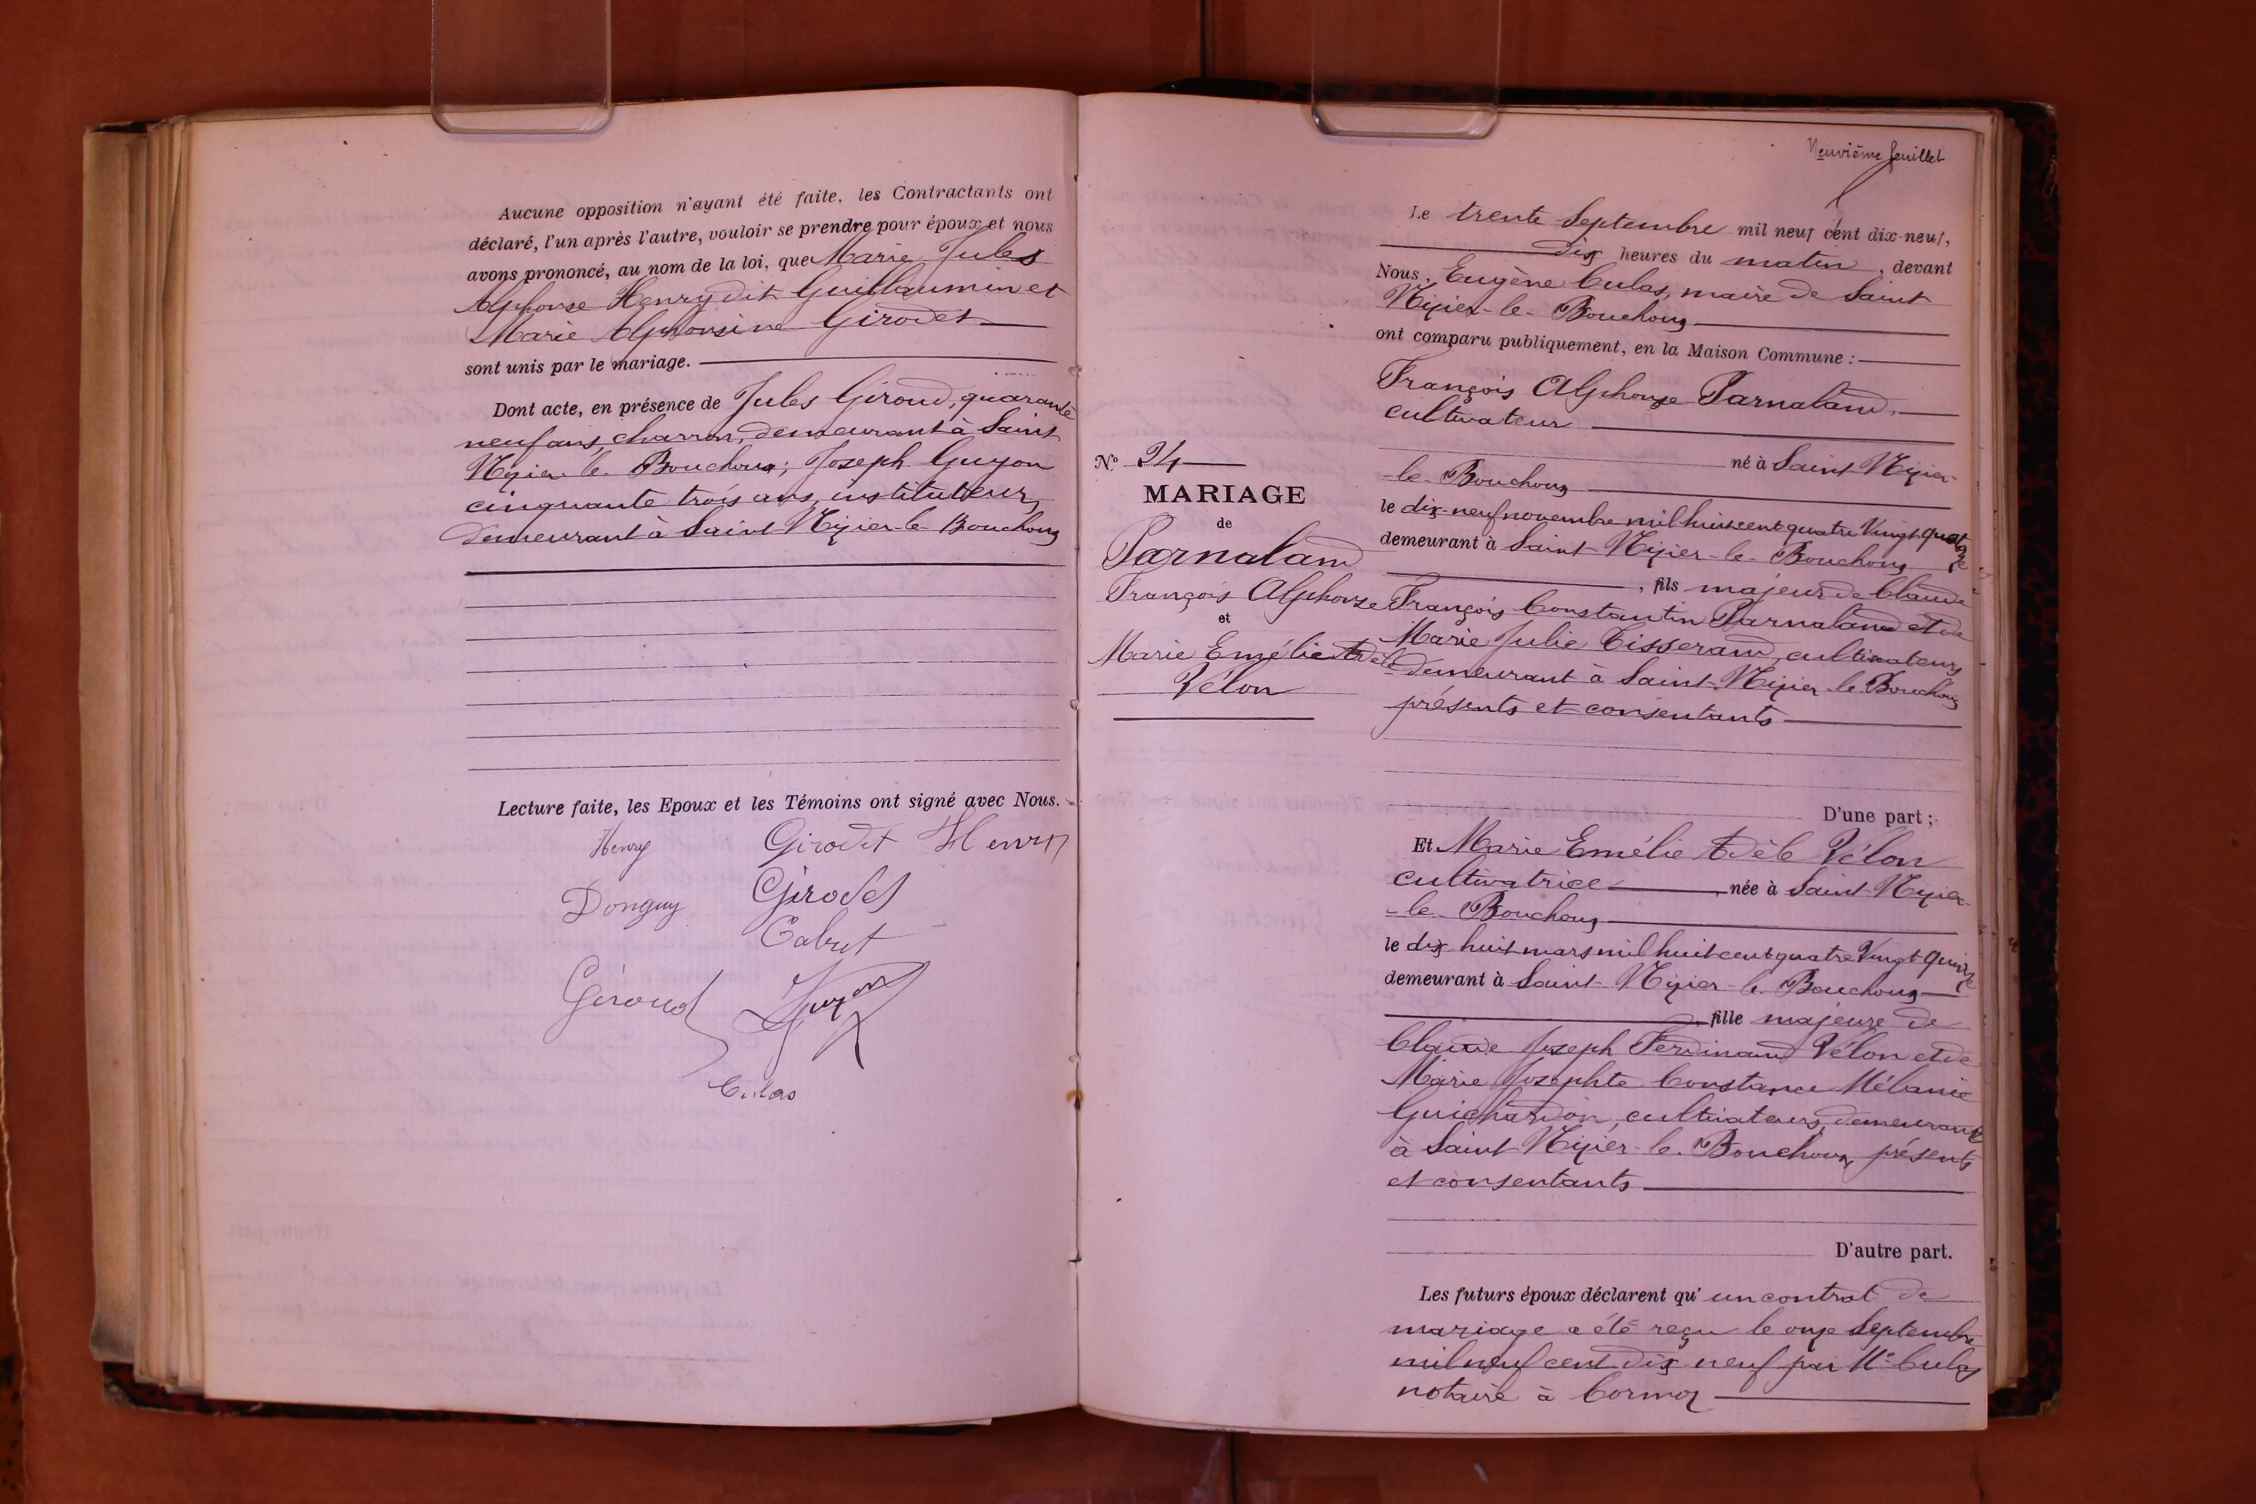 Aucune opposition n'ayant été faite, les Contractants ont
déclaré, l'un après l'autre, vouloir se prendre pour époux et nous
avons prononcé, au nom de la loi, que Marie Jules
Alphonse Henry dit Guillaumin et
Marie Alphonsine Girodet
sont unis par le mariage.
Dont acte, en présence de Jules Giroud, quarante
neuf ans, charron, demeurant à Saint
Nizier le Bouchoux; Joseph Guyon
cinquante trois ans, instituteur,
demeurant à Saint Nizier-le-Bouchoux
Lecture faite, les Epoux et les Témoins ont signé avec Nous.
Henry Girodet Henry
Donguy Girodet
Cabut
Giroud Guyon
Culas
Neuvième feuillet
N° 24
MARIAGE
de
Parnaland
François Alphonse
et
Marie Emélie Adèle
Vélon
Le trente Septembre mil neuf cent dix-neuf,
dix heures du matin, devant
Nous, Eugène Culas, maire de Saint
Nizier-le-Bouchoux
ont comparu publiquement, en la Maison Commune :
François Alphonse Parnaland,
cultivateur
né à Saint Nizier
-le-Bouchoux
le dix-neuf novembre mil huit cent quatre Vingt quatorze
demeurant à Saint-Nizier-le-Bouchoux
, fils majeur de Claude
François Constantin Parnaland et de
Marie Julie Tisserand, cultivateurs
demeurant à Saint-Nizier-le-Bouchoux
présents et consentants
D'une part ;
Et Marie Emélie Adèle Vélon
cultivatrice, née à Saint-Nizier
-le-Bouchoux
le dix huit mars mil huit cent quatre Vingt Quinze
demeurant à Saint-Nizier-le-Bouchoux
, fille majeure de
Claude Joseph Ferdinand Vélon et de
Marie Josephte Constance Mélanie
Guichardon, cultivateurs, demeurant
à Saint Nizier-le-Bouchoux, présents
et consentants
D'autre part.
Les futurs époux déclarent qu'un contrat de
mariage a été reçu le onze Septembre
mil neuf cent dix neuf par Me Culas
notaire à Cormoz